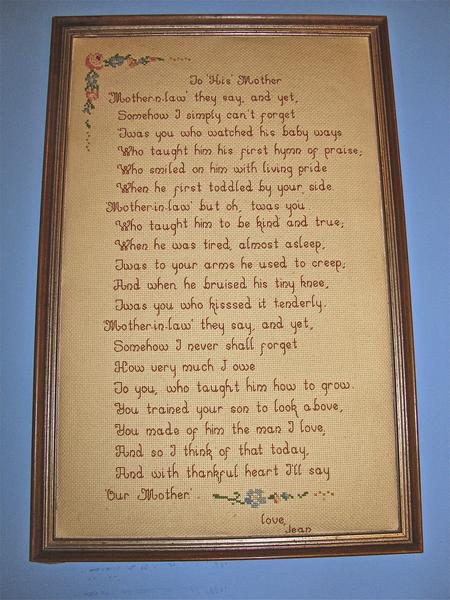 To 'His' Mother
'Mother-n-law' they say, and yet,
Somehow I simply can't forget
'Twas you who watched his baby ways
Who taught him his first hymn of praise;
Who smiled on him with living pride
When he first toddled by your side.
'Mother-in-law' but oh, 'twas you
Who taught him to be kind and true;
When he was tired, almost asleep,
'Twas to your arms he used to creep;
And when he bruised his tiny knee,
'Twas you who kisssed it tenderly.
'Mother-in-law' they say, and yet,
Somehow I never shall forget
How very much I owe
To you, who taught him how to grow.
You trained your son to look above,
You made of him the man I love,
And so I think of that today,
And with thankful heart I'll say
'Our Mother'.
love,
Jean